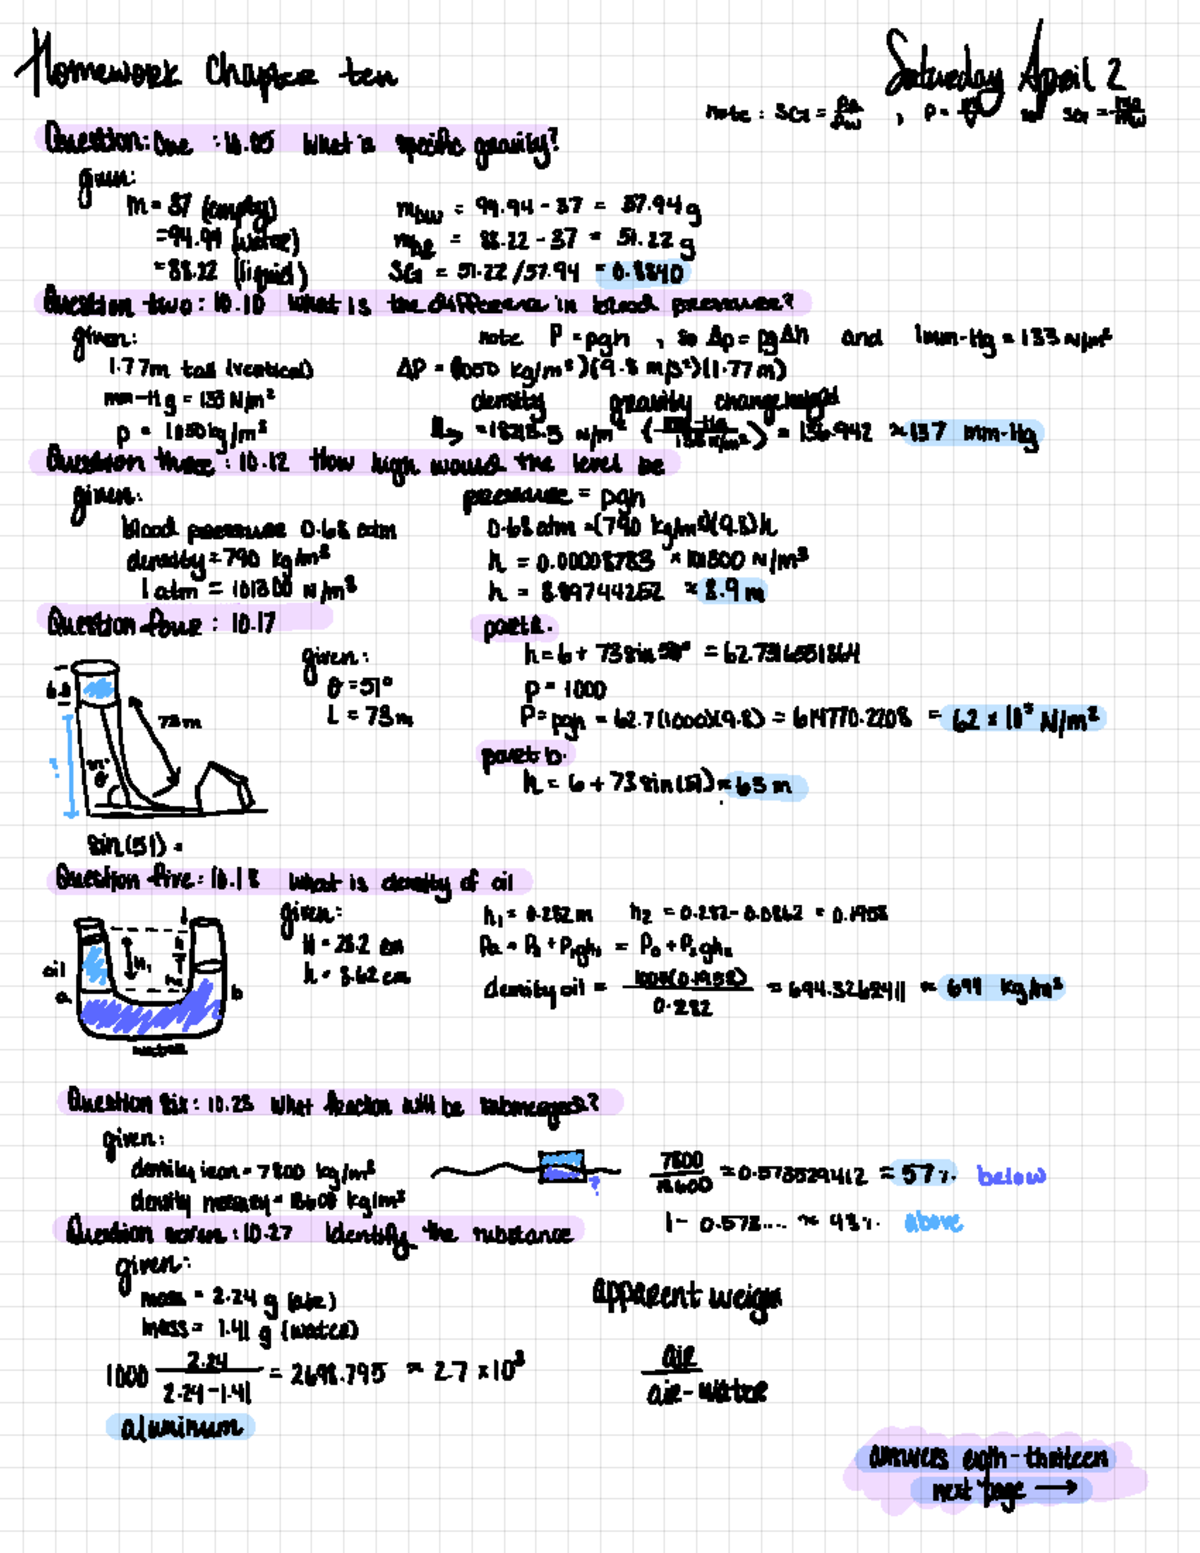 Homework Chapter ten
Saturday April 2
note : SG =
Question: One : 10.05 What is specific gravity?
given:
m = 37 (empty)
= 94.94 (water)
= 88.22 (liquid)
= 94.94 - 37 = 57.94 g
= 88.22 - 37 = 51.22 g
SG = 51.22 / 57.94 = 0.8840
Question two : 10.10 What is the difference in blood pressure?
given:
1.77m tall (vertical)
mm-Hg = 133 N/m²
ρ = 1050 kg/m³
note P = ρgh , so Δp = ρgΔh and 1mm-Hg = 133 N/m²
ΔP = (1050 kg/m³)(9.8 m/s²)(1.77m)
density gravity change
= 18213.5 N/m² = 136.942 ≈ 137 mm-Hg
Question three : 10.12 How high would the level be
given:
blood pressure 0.68 atm
density = 790 kg/m³
1 atm = 101300 N/m³
pressure = ρgh
0.68 atm = (790 kg/m³)(9.8) h
h = 0.00008783 × 101300 N/m³
h = 8.89744262 ≈ 8.9 m
Question four : 10.17
given:
θ = 51°
L = 73 m
73 m
θ
sin(51) =
part a.
h = 6 + 73 sin = 62.7316551864
ρ = 1000
P = ρgh = 62.7(1000)(9.8) = 614770.2208 = 62 × 10⁴ N/m²
part b.
h = 6 + 73 sin(51) ≈ 63 m
Question five : 10.18 what is density of oil
oil
a
b
given:
H = 28.2 cm
h = 8.62 cm
h₁ = 0.282 m h₂ = 0.282 - 0.0862 = 0.1958
density oil = = 694.3262411 ≈ 694 kg/m³
0.282
Question six : 10.23 What fraction will be submerged?
given:
density iron = 7800 kg/m³
density mercury = 13600 kg/m³
?
7800
13600
= 0.573529412 = 57% below
1 - 0.573.... ≈ 43% above
Question seven : 10.27 Identify the substance
given:
mass = 2.24 g (air)
mass = 1.41 g (water)
1000 2.24 = 2698.795 ≈ 2.7 × 10³
2.24 - 1.41
aluminum
apparent weight
air
air - water
answers eigth - thirteen
next page →